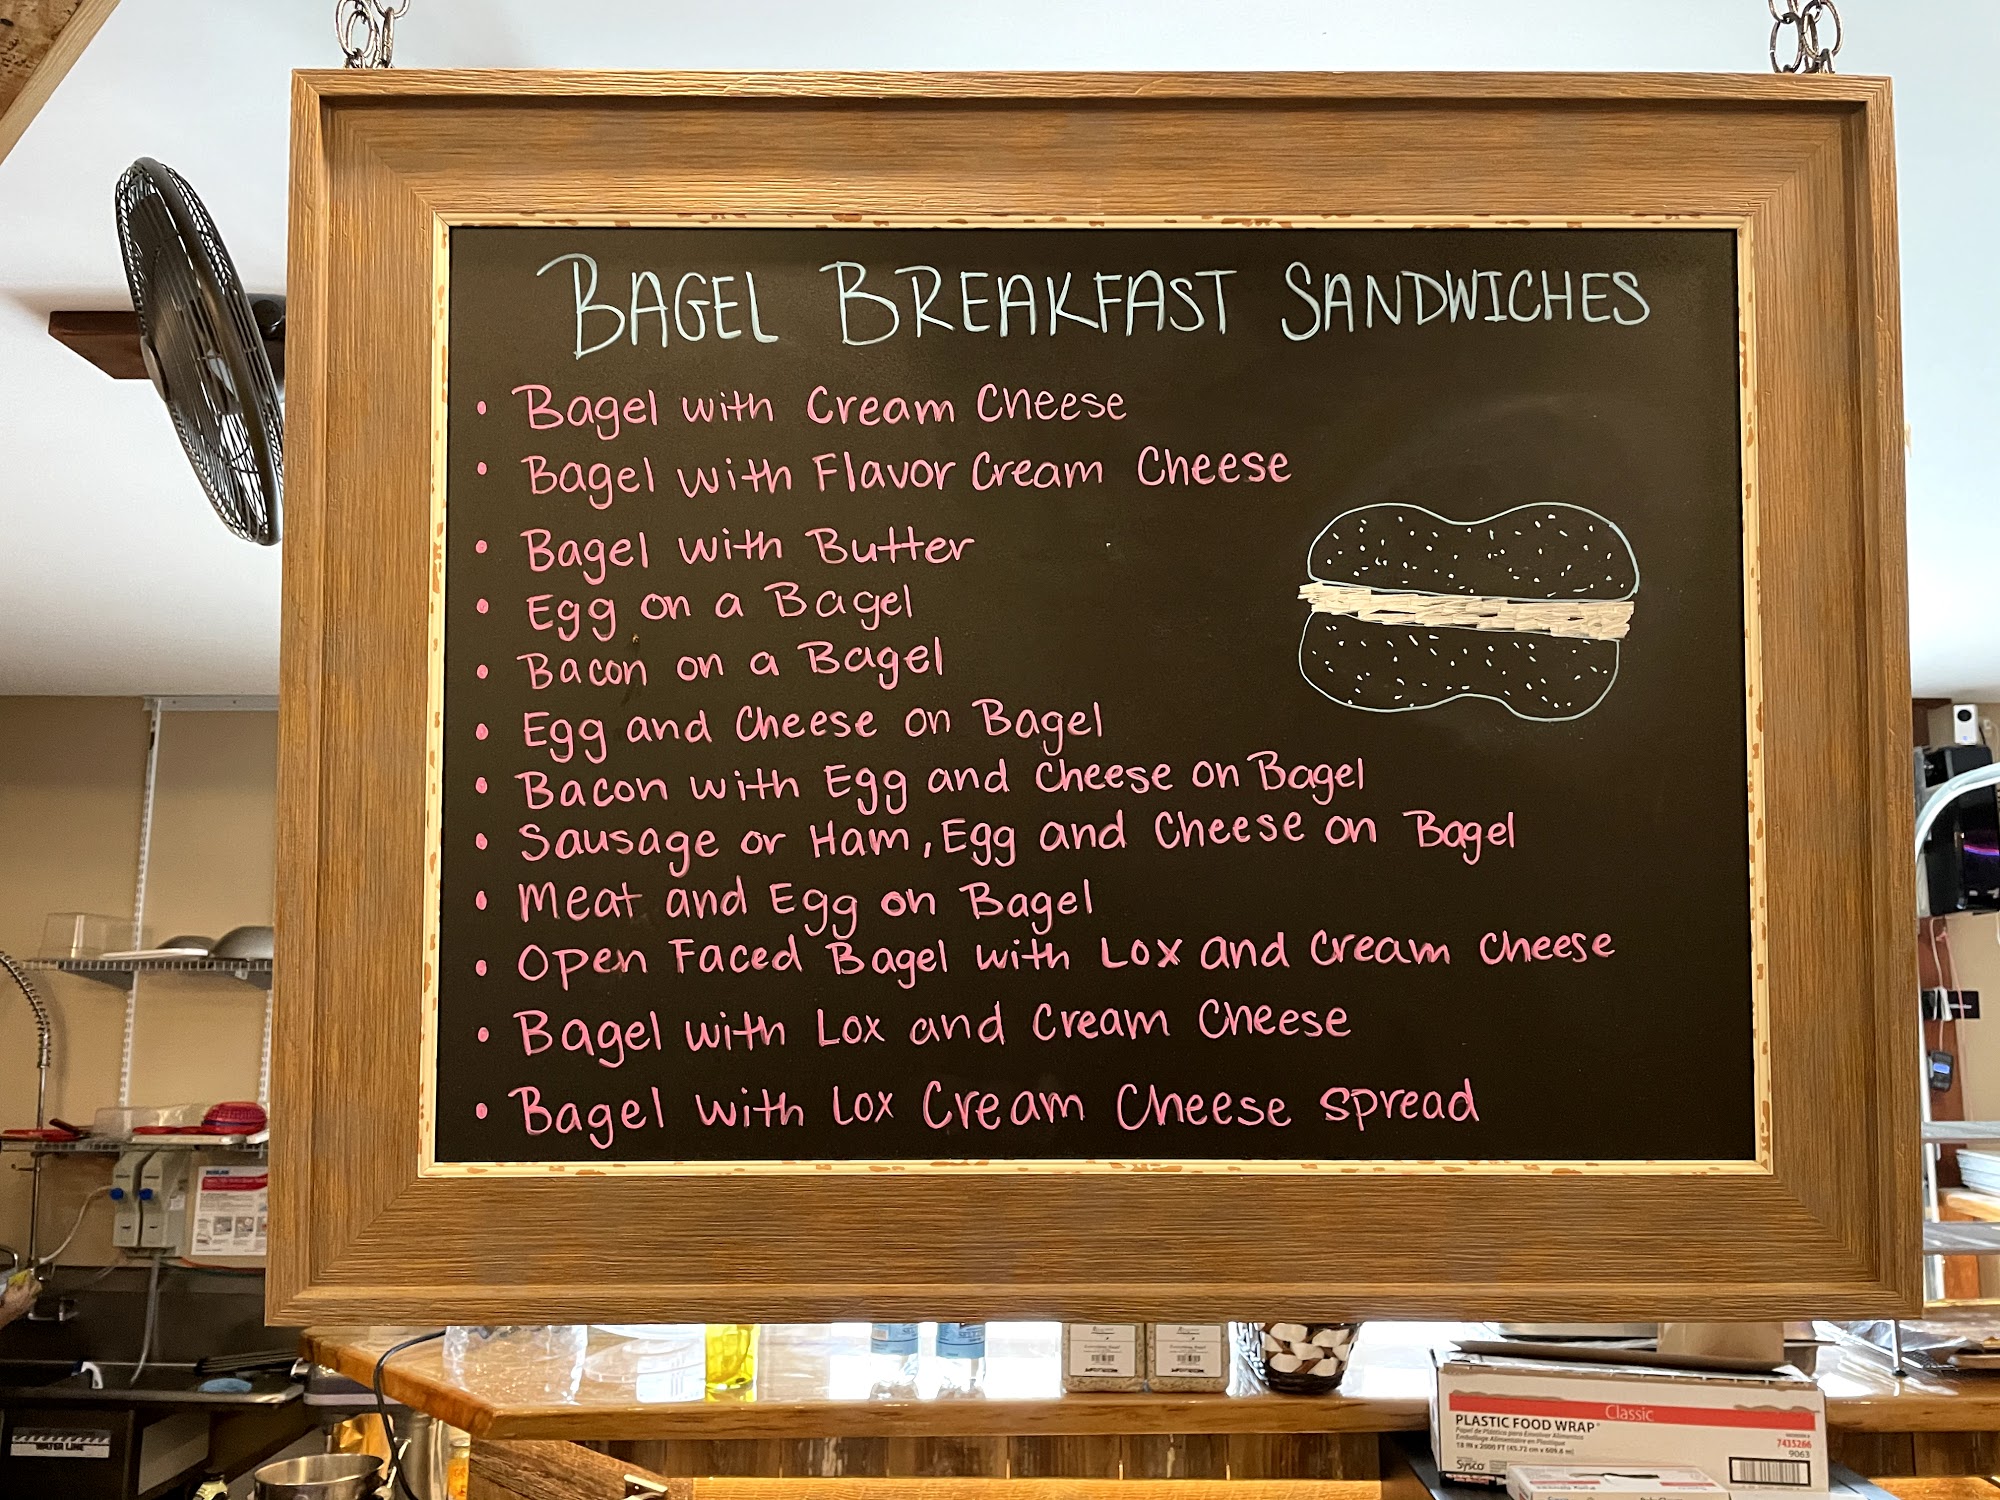 BAGEL BREAKFAST SANDWICHES
• Bagel with Cream Cheese
• Bagel with Flavor Cream Cheese
• Bagel with Butter
• Egg on a Bagel
• Bacon on a Bagel
• Egg and Cheese on Bagel
• Bacon with Egg and Cheese on Bagel
• Sausage or Ham, Egg and Cheese on Bagel
• Meat and Egg on Bagel
• Open Faced Bagel with Lox and Cream Cheese
• Bagel with Lox and Cream Cheese
• Bagel with Lox Cream Cheese spread
WATER LINE
Classic
PLASTIC FOOD WRAP
18 IN x 2000 FT (45.72 cm x 609.6 m)
Sysco
7435266
9063